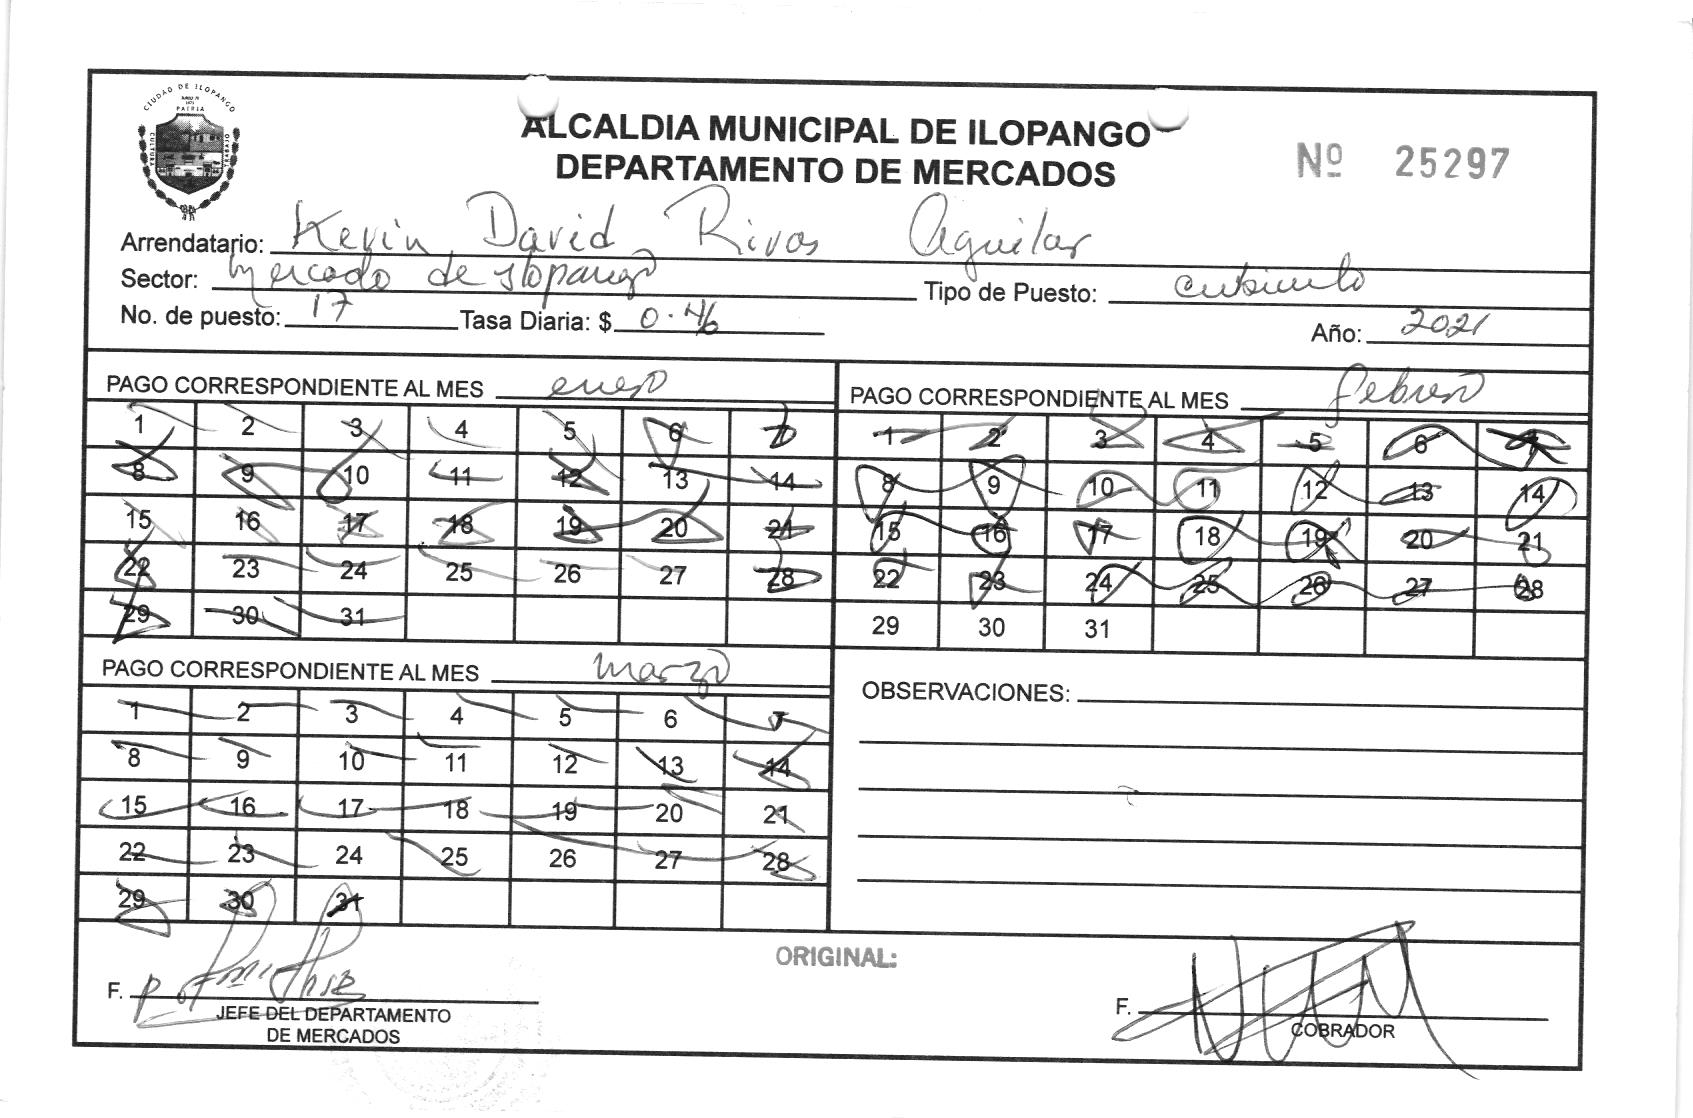 CIUDAD DE ILOPANGO
PATRIA
CULTURA
ALCALDIA MUNICIPAL DE ILOPANGO
DEPARTAMENTO DE MERCADOS
Nº 25297
Arrendatario: Kevin David Rivas Aguilar
Sector: Mercado de Ilopango Tipo de Puesto: cubiculo
No. de puesto: 17 Tasa Diaria: $ 0.46 Año: 2021
PAGO CORRESPONDIENTE AL MES enero
1 2 3 4 5 6 7
8 9 10 11 12 13 14
15 16 17 18 19 20 21
22 23 24 25 26 27 28
29 30 31
PAGO CORRESPONDIENTE AL MES febrero
1 2 3 4 5 6 7
8 9 10 11 12 13 14
15 16 17 18 19 20 21
22 23 24 25 26 27 28
29 30 31
PAGO CORRESPONDIENTE AL MES marzo
1 2 3 4 5 6 7
8 9 10 11 12 13 14
15 16 17 18 19 20 21
22 23 24 25 26 27 28
29 30 31
OBSERVACIONES:
ORIGINAL:
F.
JEFE DEL DEPARTAMENTO
DE MERCADOS
F.
COBRADOR